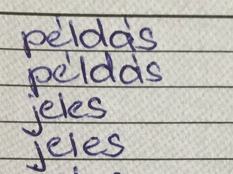 példás
példás
jeles
jeles